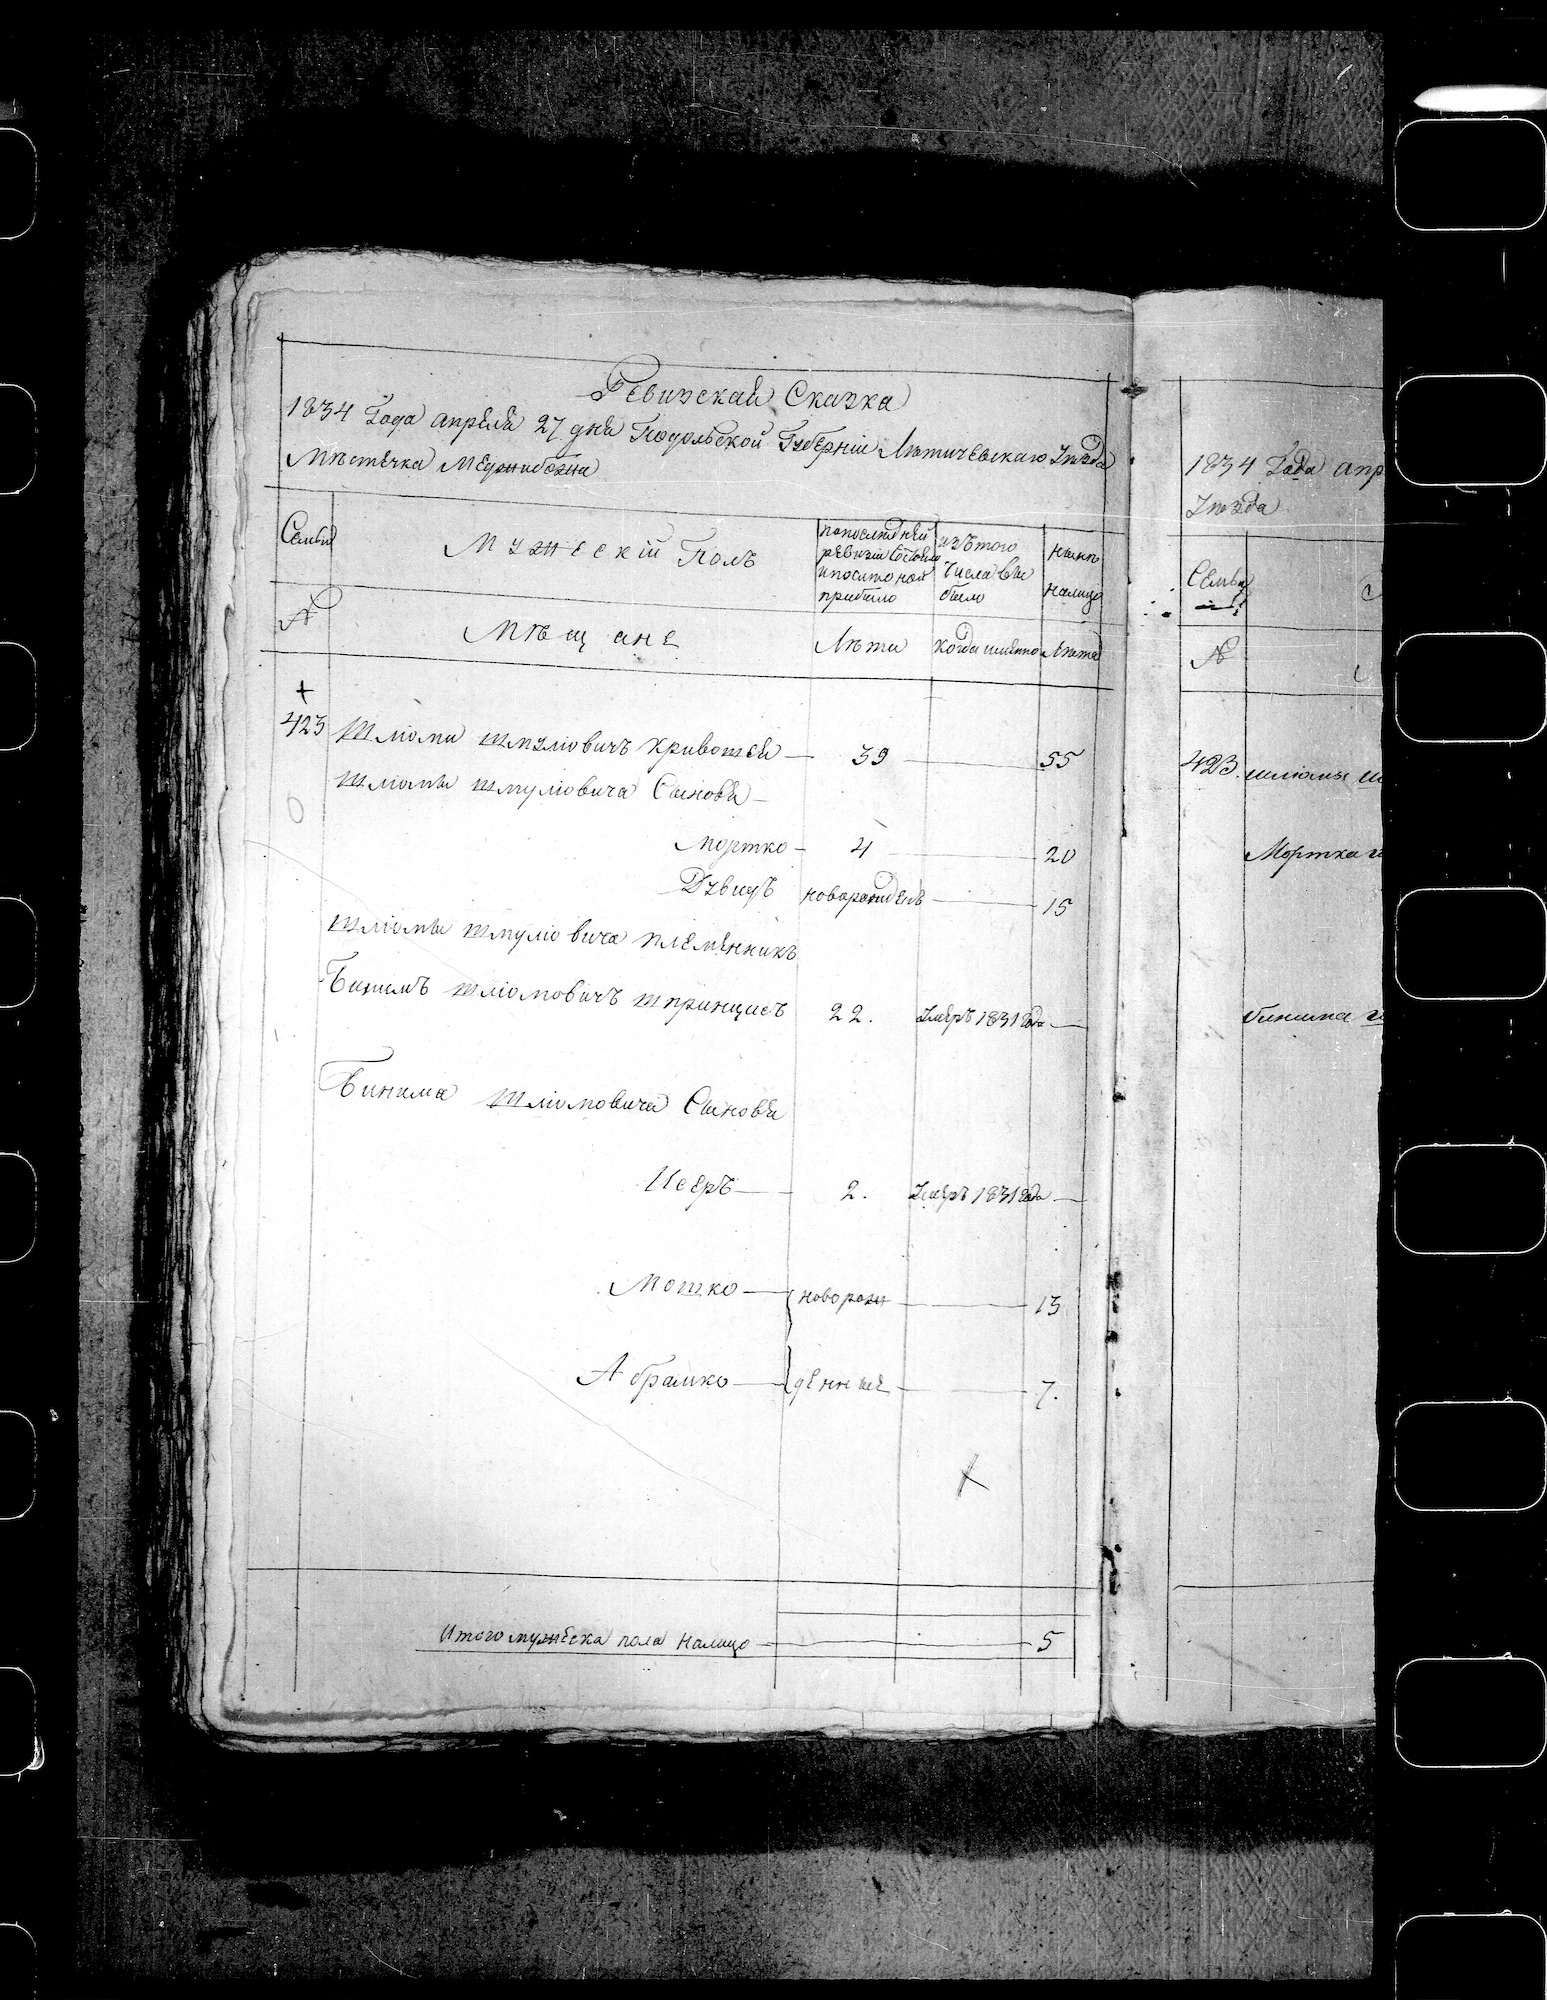 Ревизская Сказка
1834 Года апреля 27 дня Подольской Губерніи Летичевскаго Уезда
Местечка Меджибожа
Семьи
Мужескій Полъ
По последней ревизіи Состояло и после тоной прибыло
изъ того числа вы было
ныне на лицо
№
Мещане
Лета
когда именно
Лета
423 Шліома Шмуліовичъ Кривошея — 39 — 55
Шліомы Шмуліовича Сыновья —
Мортко — 4 — 20
новорожденъ — 15
Шліомы Шмуліовича племенникъ
Бинимъ Шліомовичъ Шпринцисъ 22. Умеръ 1831 года —
Бинима Шліомовича Сыновья
Исеръ — 2. Умеръ 1831 года —
Мошко — новорож — 13
Абрамко — денные — 7.
Итого мужеска пола налицо — 5
1834 Года апр
Уезда
Семьи
№
423. Шліомы
Мортка
Бинима